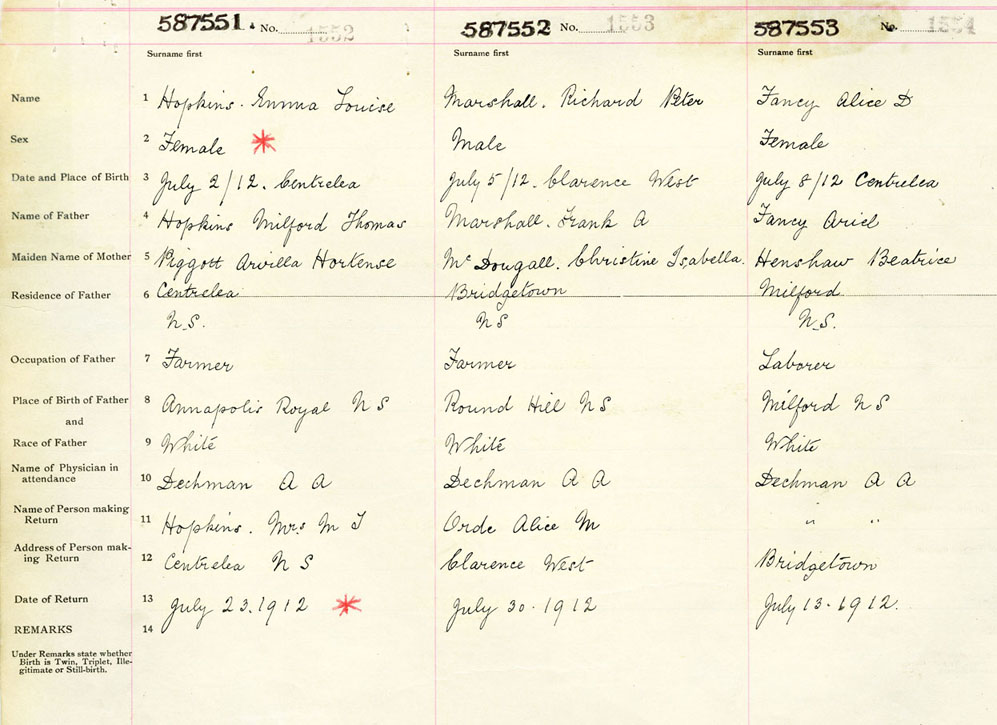 587551. No. 1552 587552 No. 1553 587553 No. 1554
Surname first Surname first Surname first
Name 1 Hopkins. Emma Louise Marshall. Richard Peter Fancy Alice D
Sex 2 Female * Male Female
Date and Place of Birth 3 July 2/12. Centrelea July 5/12. Clarence West July 8/12 Centrelea
Name of Father 4 Hopkins Milford Thomas Marshall. Frank A Fancy Ariel
Maiden Name of Mother 5 Piggott Arvilla Hortense Mc Dougall. Christine Isabella. Henshaw Beatrice
Residence of Father 6 Centrelea Bridgetown Milford
N.S. NS N.S.
Occupation of Father 7 Farmer Farmer Laborer
Place of Birth of Father 8 Annapolis Royal N S Round Hill N S Milford N S
and
Race of Father 9 White White White
Name of Physician in
attendance 10 Dechman A A Dechman A A Dechman A A
Name of Person making
Return 11 Hopkins. Mrs M T Orde Alice M " "
Address of Person mak-
ing Return 12 Centrelea N S Clarence West Bridgetown
Date of Return 13 July 23.1912 * July 30.1912 July 13.1912.
REMARKS 14
Under Remarks state whether
Birth is Twin, Triplet, Ille-
gitimate or Still-birth.